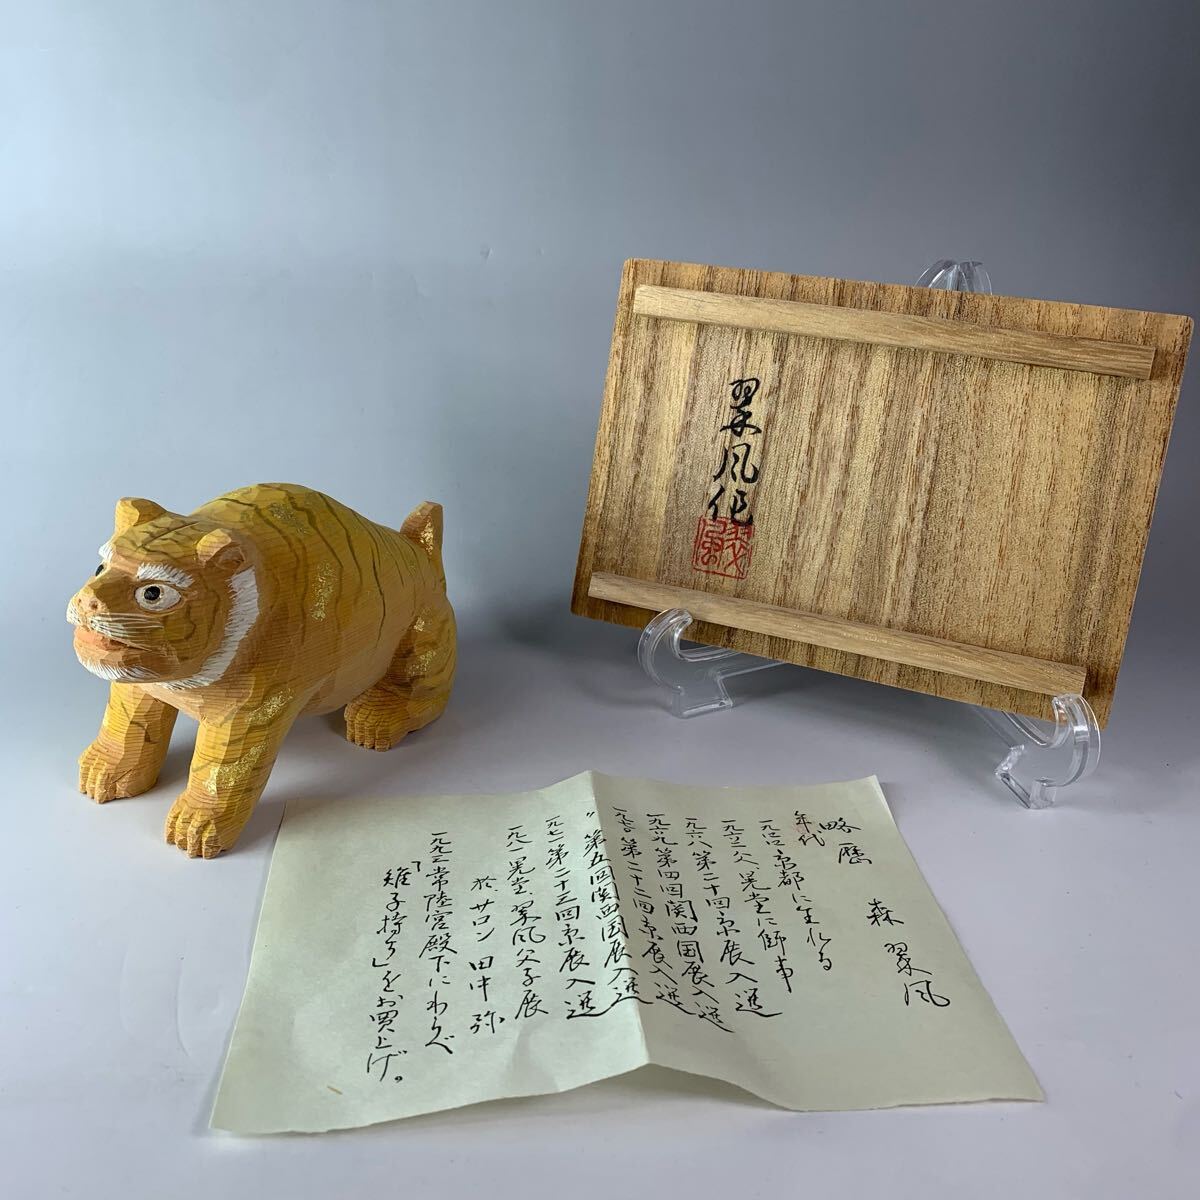 翠風作
略歴 森 翠風
年代
京都に生れる
一九六二 父、晃堂に師事
一九六八 第二十回京展入選
一九六九 第四回関西国展入選
一九七〇 第二十二回京展入選
〃 第五回関西国展入選
一九七一 第二十三回京展入選
一九八一 晃堂、翠風父子展
於、サロン 田中 弥
一九九三 常陸宮殿下にわらべ
「雉子持ち」をお買上げ。